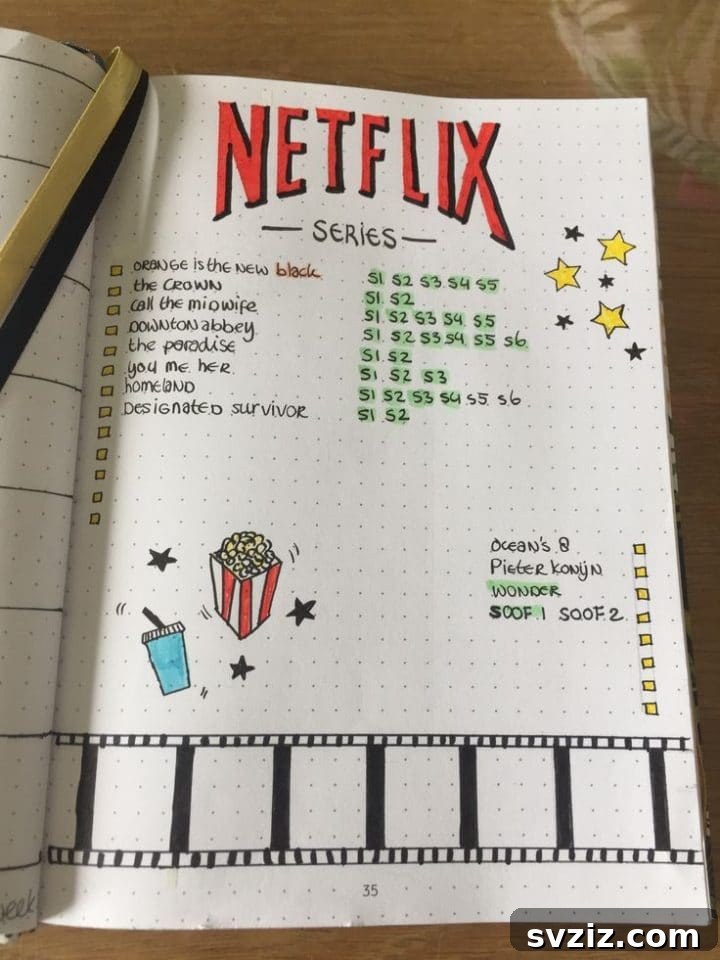 NETFLIX
— SERIES —
ORANGE is the NEW black S1 S2 S3 S4 S5
the CROWN S1 S2
call the midwife S1 S2 S3 S4 S5
DOWNTON abbey S1 S2 S3 S4 S5 S6
the paradise S1 S2
you me her S1 S2 S3
homeland S1 S2 S3 S4 S5 S6
Designated survivor S1 S2
OCEAN'S 8
Pieter Konijn
WONDER
SOOF 1 SOOF 2
35
eek
svziz.com